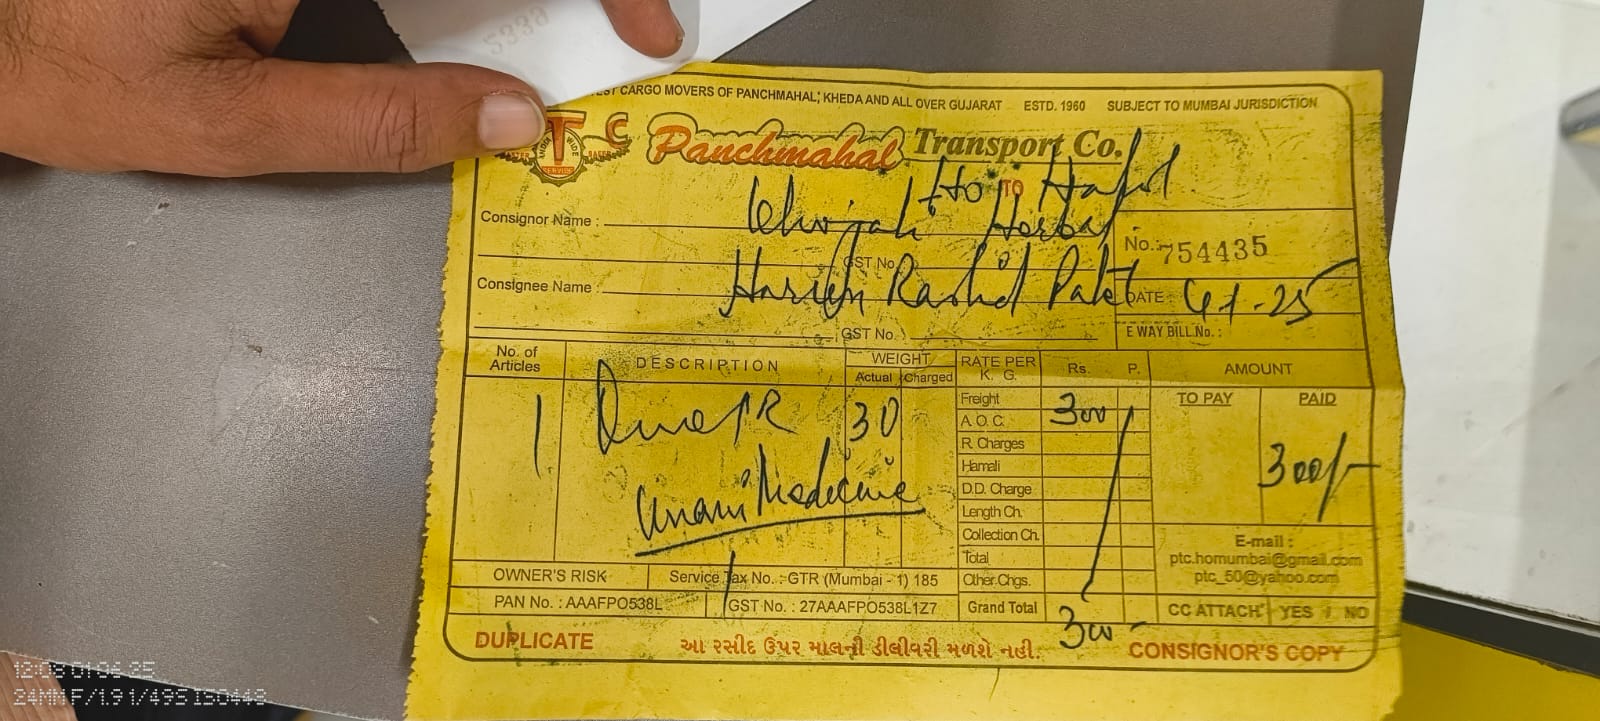 5339
EST CARGO MOVERS OF PANCHMAHAL, KHEDA AND ALL OVER GUJARAT ESTD. 1960 SUBJECT TO MUMBAI JURISDICTION
T C
INDIA WIDE
SERVICE
Panchmahal Transport Co.
TO
Consignor Name : Herbal
No. : 754435
GST No.
Consignee Name : Rashid Patel
DATE : 4-1-25
GST No.
E WAY BILL No. :
No. of Articles DESCRIPTION WEIGHT RATE PER K. G. Rs. P. AMOUNT
Actual Charged
Freight 300 TO PAY PAID
1 30
A. O. C.
R. Charges
Hamali 300/-
D.D. Charge
Unani Medecine
Length Ch.
Collection Ch.
E-mail :
Total
ptc.homumbai@gmail.com
OWNER'S RISK Service Tax No. :-GTR (Mumbai - 1) 185 Other.Chgs. ptc_50@yahoo.com
PAN No. : AAAFPO538L GST No. : 27AAAFPO538L1Z7 Grand Total 300- CC ATTACH YES / NO
DUPLICATE આ રસીદ ઉપર માલની ડીલીવરી મળશે નહી. CONSIGNOR'S COPY
12:09 01.06.25
24MM F/1.91/49S ISO448